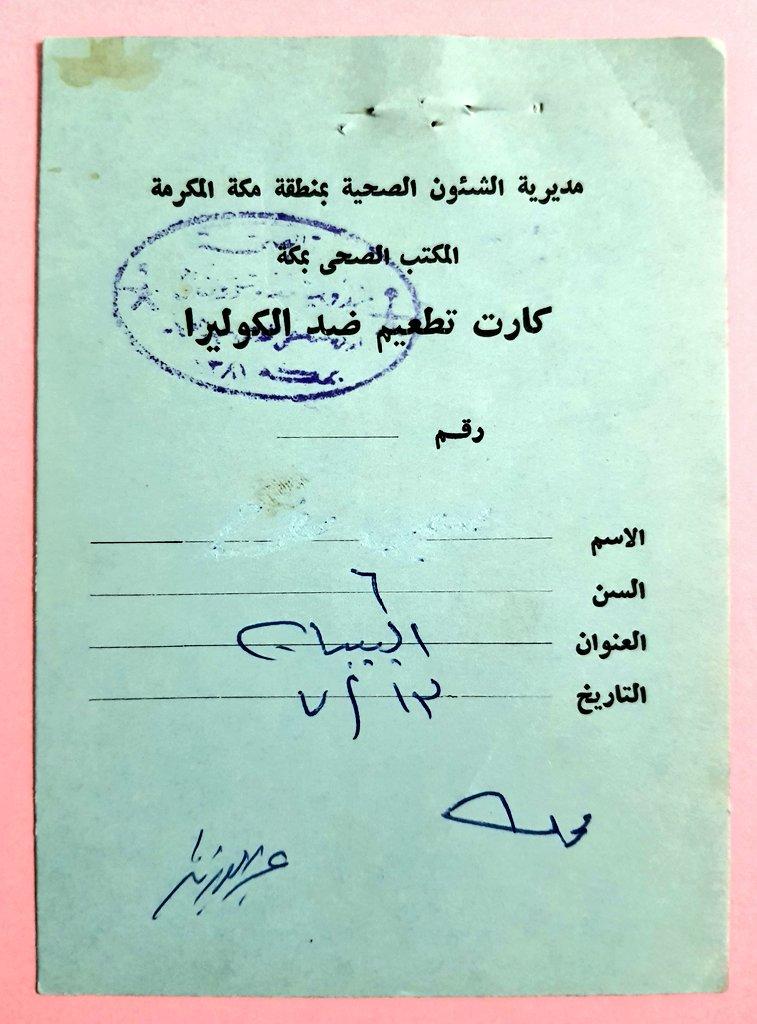 مديرية الشئون الصحية بمنطقة مكة المكرمة
المكتب الصحى بمكة
كارت تطعيم ضد الكوليرا
رقم
الاسم
السن ٦
العنوان
التاريخ ١٣ / ٧